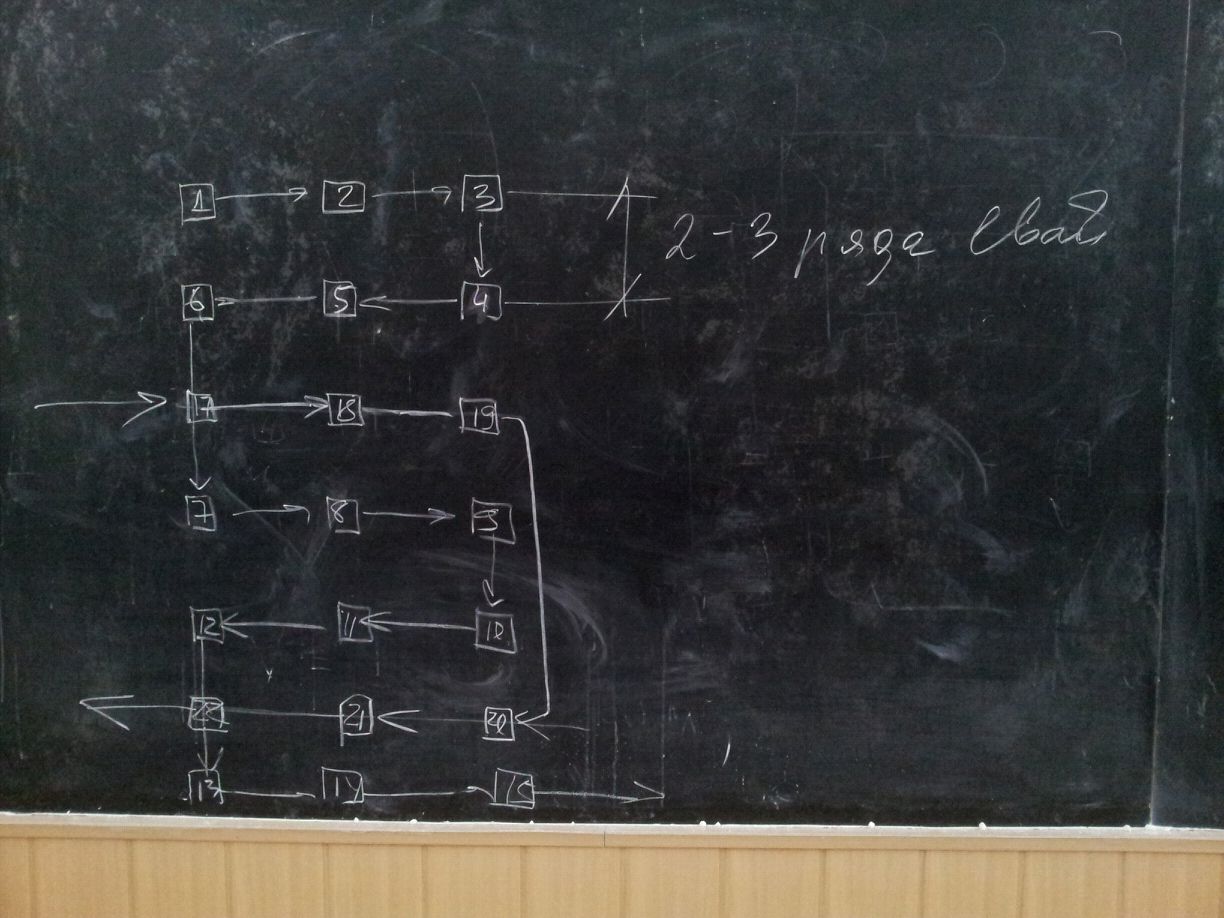 1 2 3
2-3 ряда свай
6 5 4
17 18 19
7 8 9
12 11 10
22 21 20
13 14 15